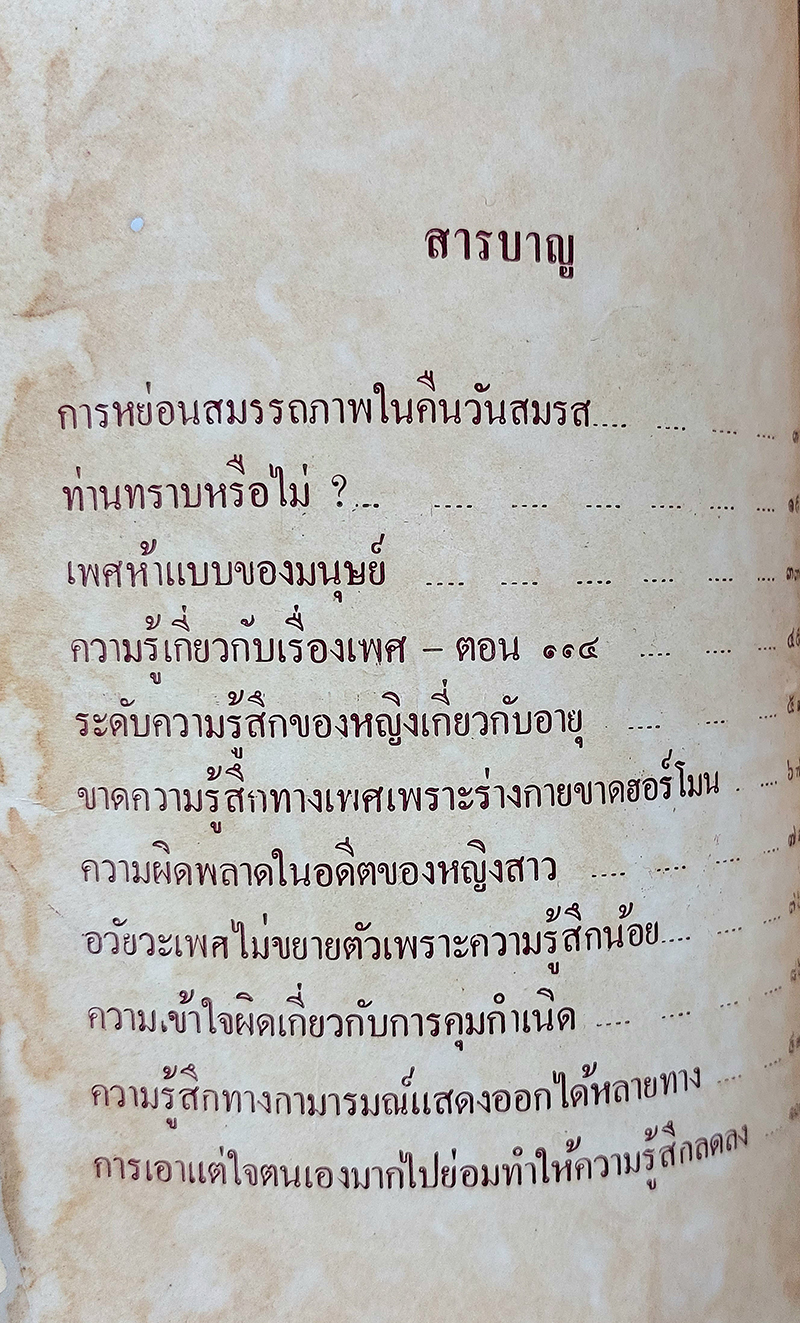 สารบาญ
การหย่อนสมรรถภาพในคืนวันสมรส.... .... .... ....
ท่านทราบหรือไม่ ?... .... .... .... .... ....
เพศห้าแบบของมนุษย์ .... .... .... .... .... ....
ความรู้เกี่ยวกับเรื่องเพศ – ตอน ๑๑๔ .... .... ....
ระดับความรู้สึกของหญิงเกี่ยวกับอายุ .... ... ....
ขาดความรู้สึกทางเพศเพราะร่างกายขาดฮอร์โมน . ....
ความผิดพลาดในอดีตของหญิงสาว .... .... ... ....
อวัยวะเพศไม่ขยายตัวเพราะความรู้สึกน้อย.... ... ....
ความเข้าใจผิดเกี่ยวกับการคุมกำเนิด .... .... ... ....
ความรู้สึกทางกามารมณ์แสดงออกได้หลายทาง .... ....
การเอาแต่ใจตนเองมากไปย่อมทำให้ความรู้สึกลดลง ....